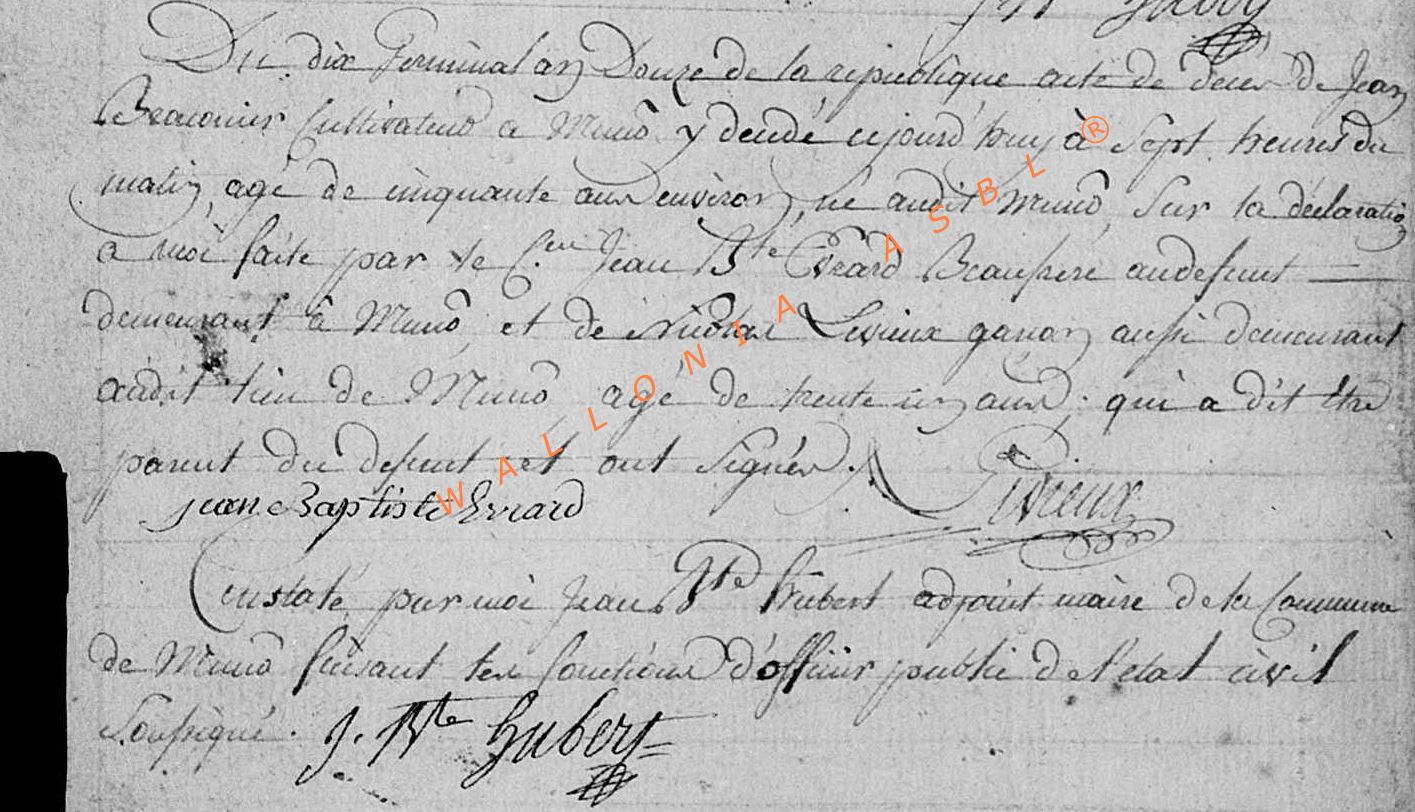 Du dix Germinal an Douze de la republique acte de deces de Jean
Braconier Cultivateur a Muno y decédé cejourd'huy à Sept heures du
matin, agé de cinquante ans environ, né audit Muno, Sur la déclaration
a moi faite par le C.en Jean Bte Evrard Beaupere audefunt
demeurant à Muno, et de Nicolas Livieux ganon aussi demeurant
audit lieu de Muno agé de trente un ans; qui a dit Etre
parent du defunt et ont Signés.
jean Baptiste Evrard Livieux
Constaté par moi Jean Bte hubert adjoint maire de la Commune
de Muno faisant les fonctions d'officier public de l'etat civil
Soussigné. J. Bte hubert
WALLONIA ASBL ®